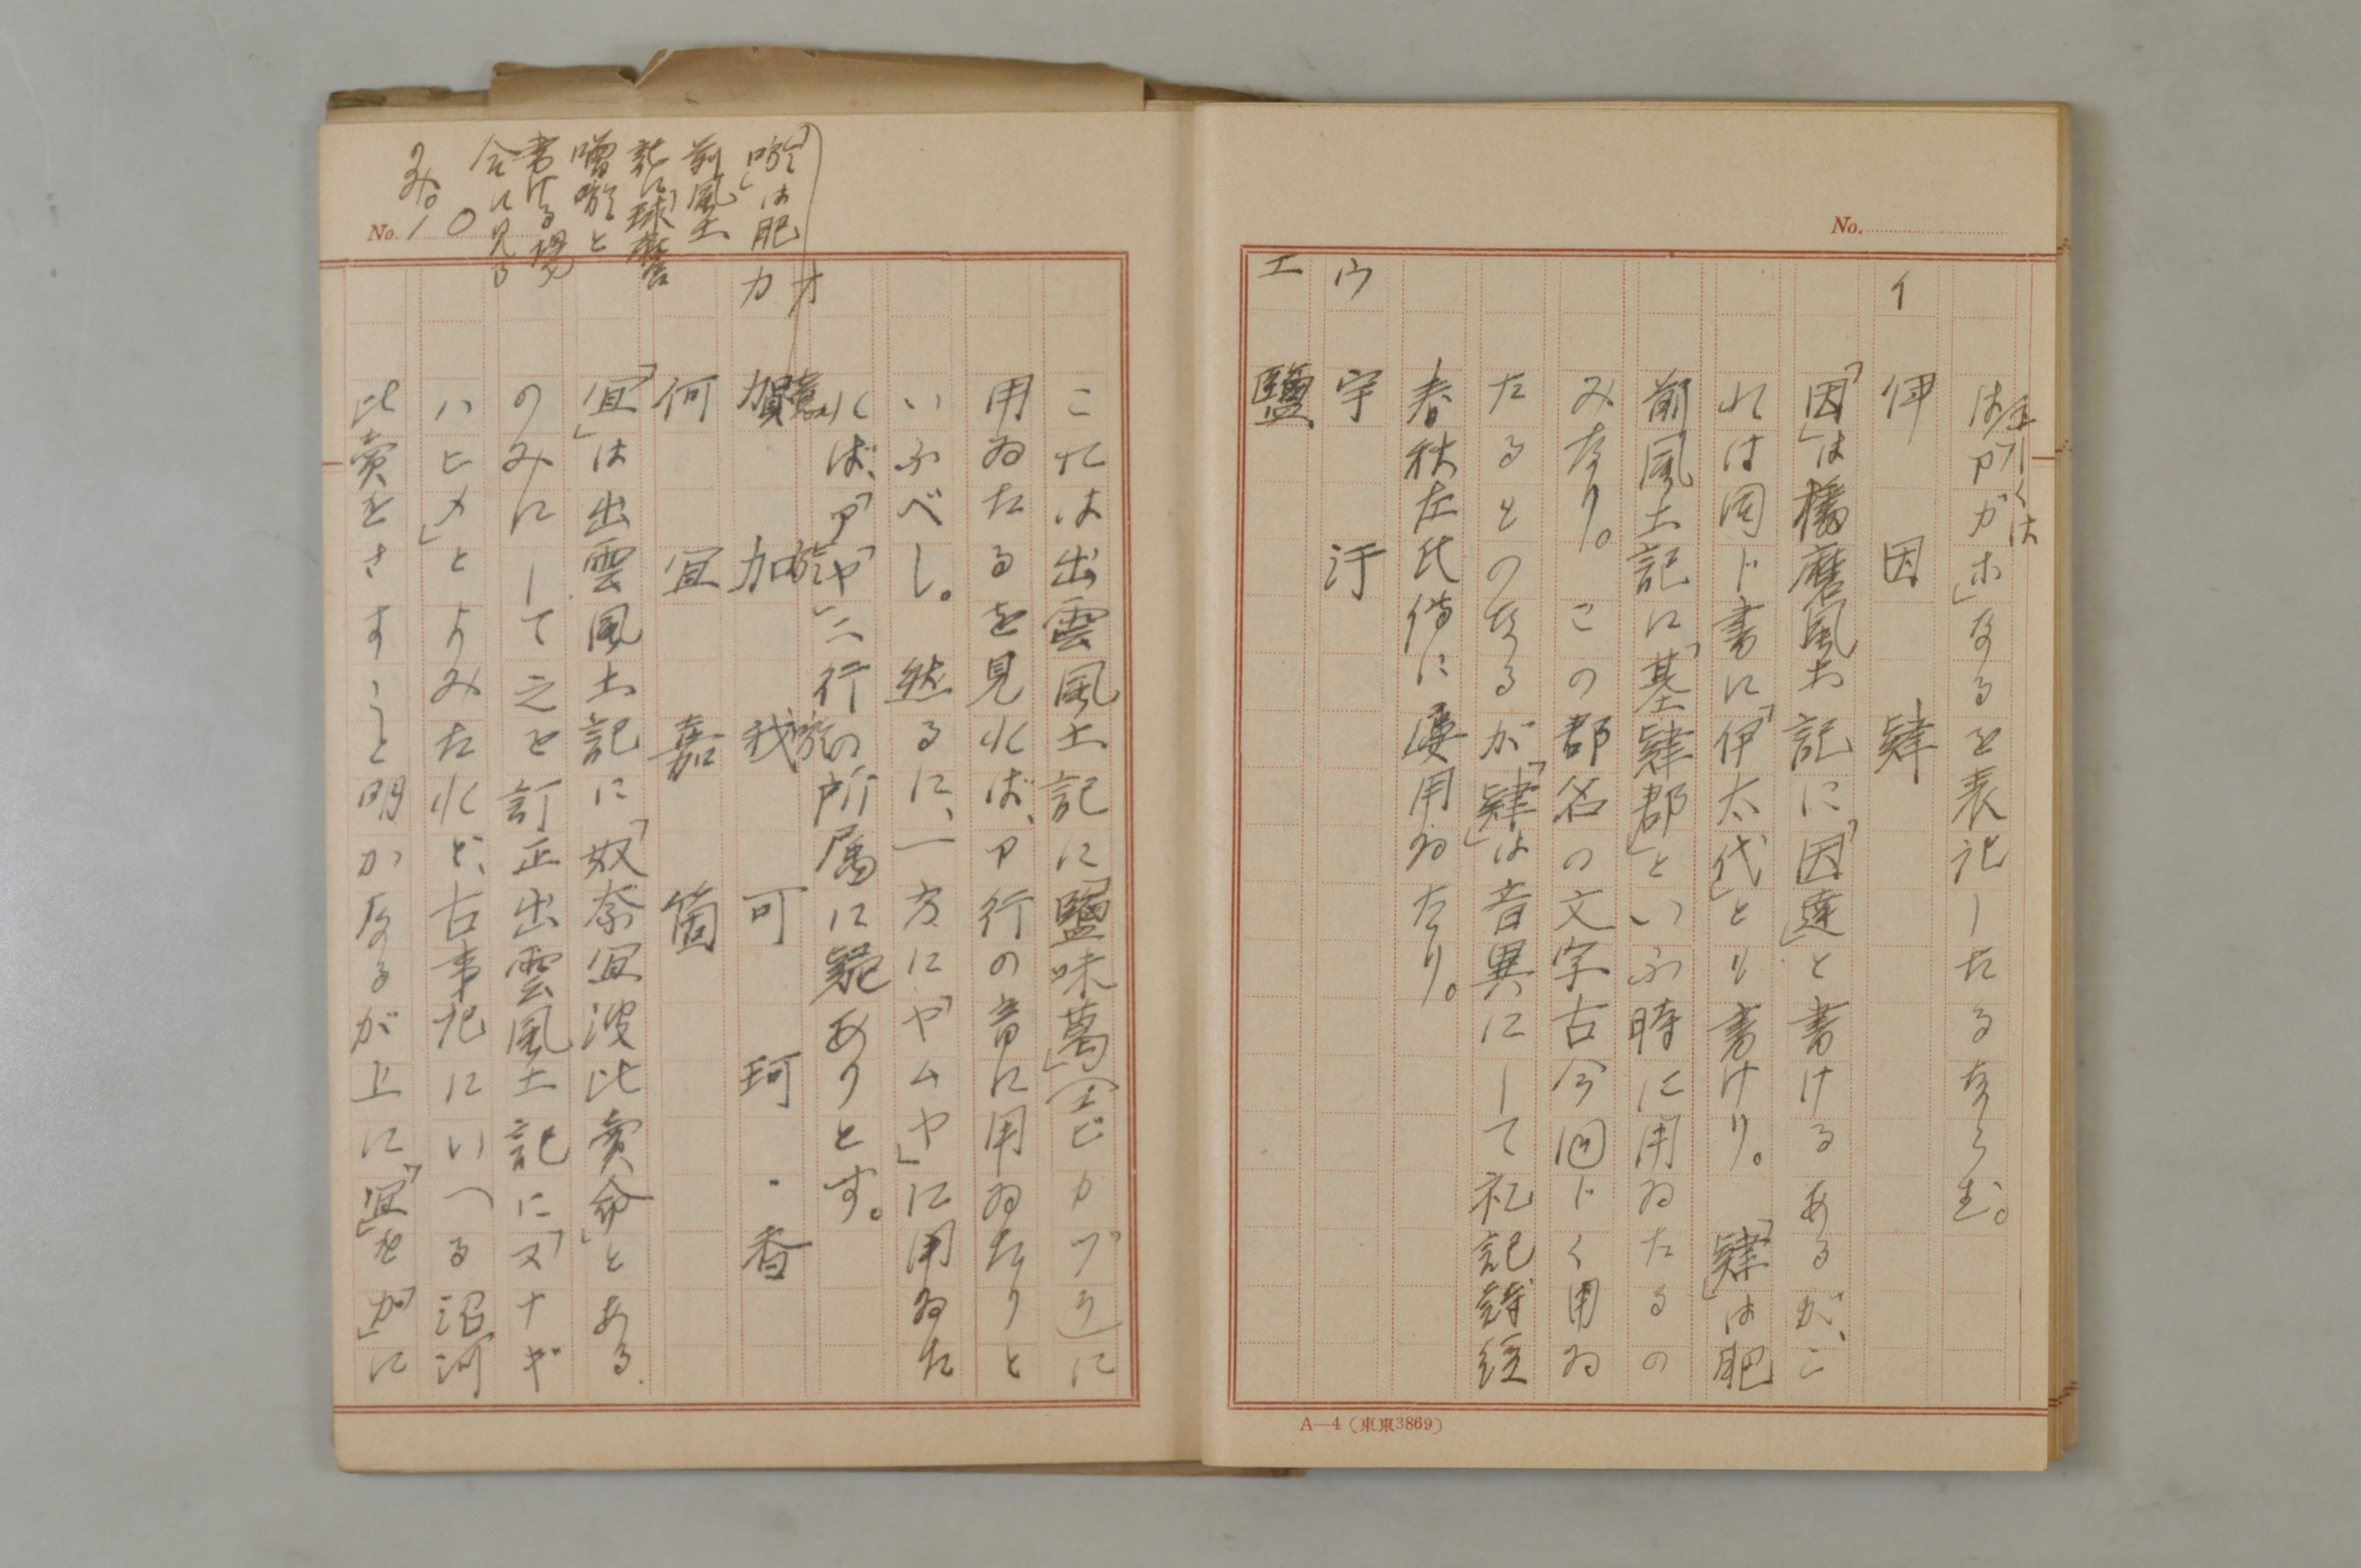 No.
或ひくは
は「アカホ」なるを表記したるならむ。
イ
伊 因 肄
「因」は播磨風土記に「因達」と書けるあるが、こ
れは同じ書に「伊太代」とり書けり。「肄」は肥
前風土記に「基肄郡」といふ時に用ゐたるの
みなり。この郡名の文字古今同じく用ゐ
たるとのなるが「肄」は音異にして礼記詩経
春秋左氏伝に屡用ゐたり。
ウ
宇 汙
エ
鹽
A—4(東東3869)
これは出雲風土記に「鹽味葛」(エビカヅラ)に
用ゐたるを見れば、ア行の音に用ゐたりと
いふべし。然るに、一方に「ヤムヤ」に用ゐた
れば、「ア」「ヤ」二行の所属に疑ありとす。
オ
意
カ
賀 加 我 可 珂・香
何 宜 嘉 箇
「宜」は出雲風土記に「奴奈宜波比賣命」とある
のみにして之を訂正出雲風土記に「ヌナギ
ハヒメ」とよみたれど、古事記にいへる沼河
比賣をさすこと明かなるが上に「宜」を「カ」に
は肥
前風土
記に「球磨
噌唹と
書ける場
合に見る
のみ。
No. 10